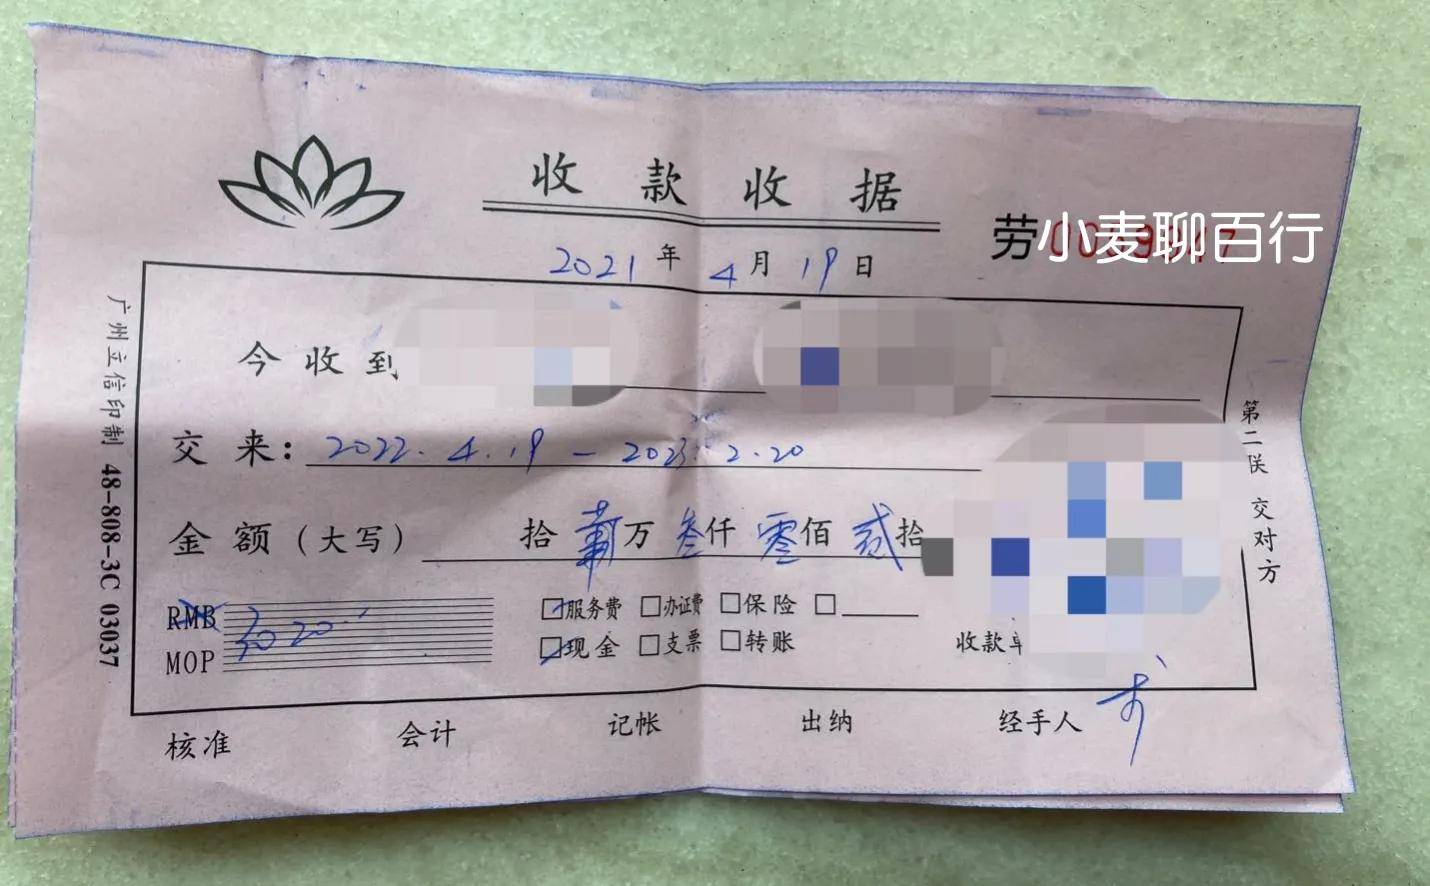 收款收据
劳 小麦聊百行
2021年4月19日
今收到
交来：2022.4.19－2023.2.20
金额（大写） 拾 万叁仟零佰贰拾
RMB 3020
MOP
☑服务费 □办证费 □保险 □
☑现金 □支票 □转账
收款单
核准 会计 记帐 出纳 经手人
广州立信印制 48-808-3C 03037
第二联 交对方